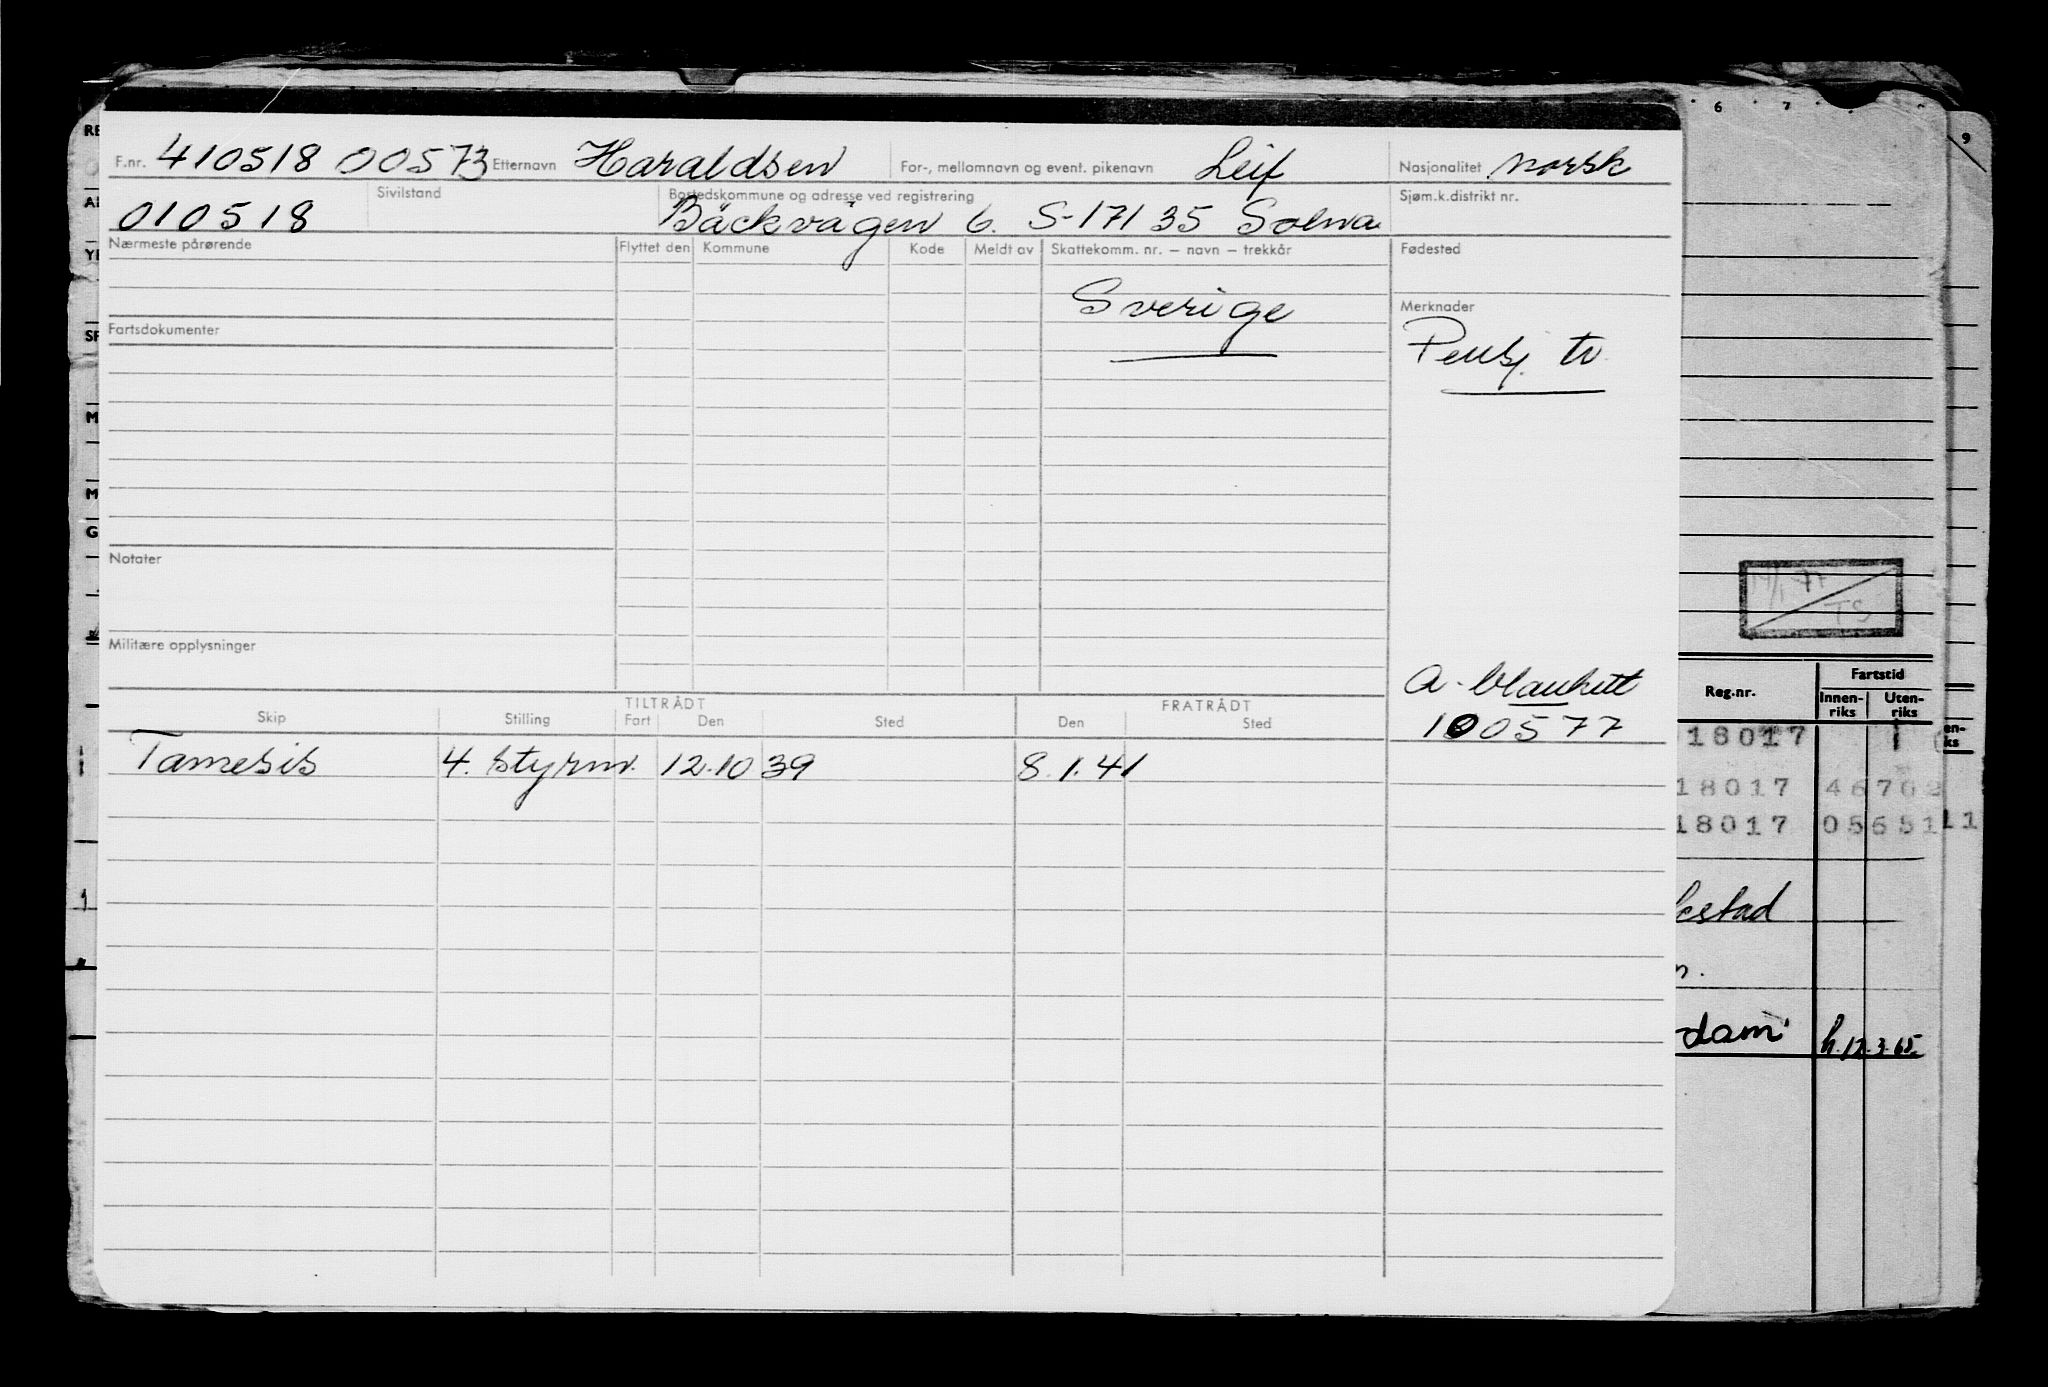 F.nr. 410518 00573 Etternavn Haraldsen For-, mellomnavn og event. pikenavn Leif Nasjonalitet norsk
010518 Sivilstand Bostedskommune og adresse ved registrering Sjøm.k.distrikt nr.
Bäckvägen 6. S-171 35 Solna
Nærmeste pårørende Flyttet den Kommune Kode Meldt av Skattekomm. nr. – navn – trekkår Fødested
Sverige
Merknader
Fartsdokumenter
Pensj. tr.
Notater
Militære opplysninger
A-blankett
100577
TILTRÅDT FRATRÅDT
Skip Stilling Fart Den Sted Den Sted
Tamesis 4. styrm. 12.10 39 8.1.41
6 7
9
RE
YI
SF
M
M
G
TS
Reg.nr. Fartstid
Innen-riks Uten-riks
18017
18017 46702
18017 0565111
kstad
dam h.12.3.65